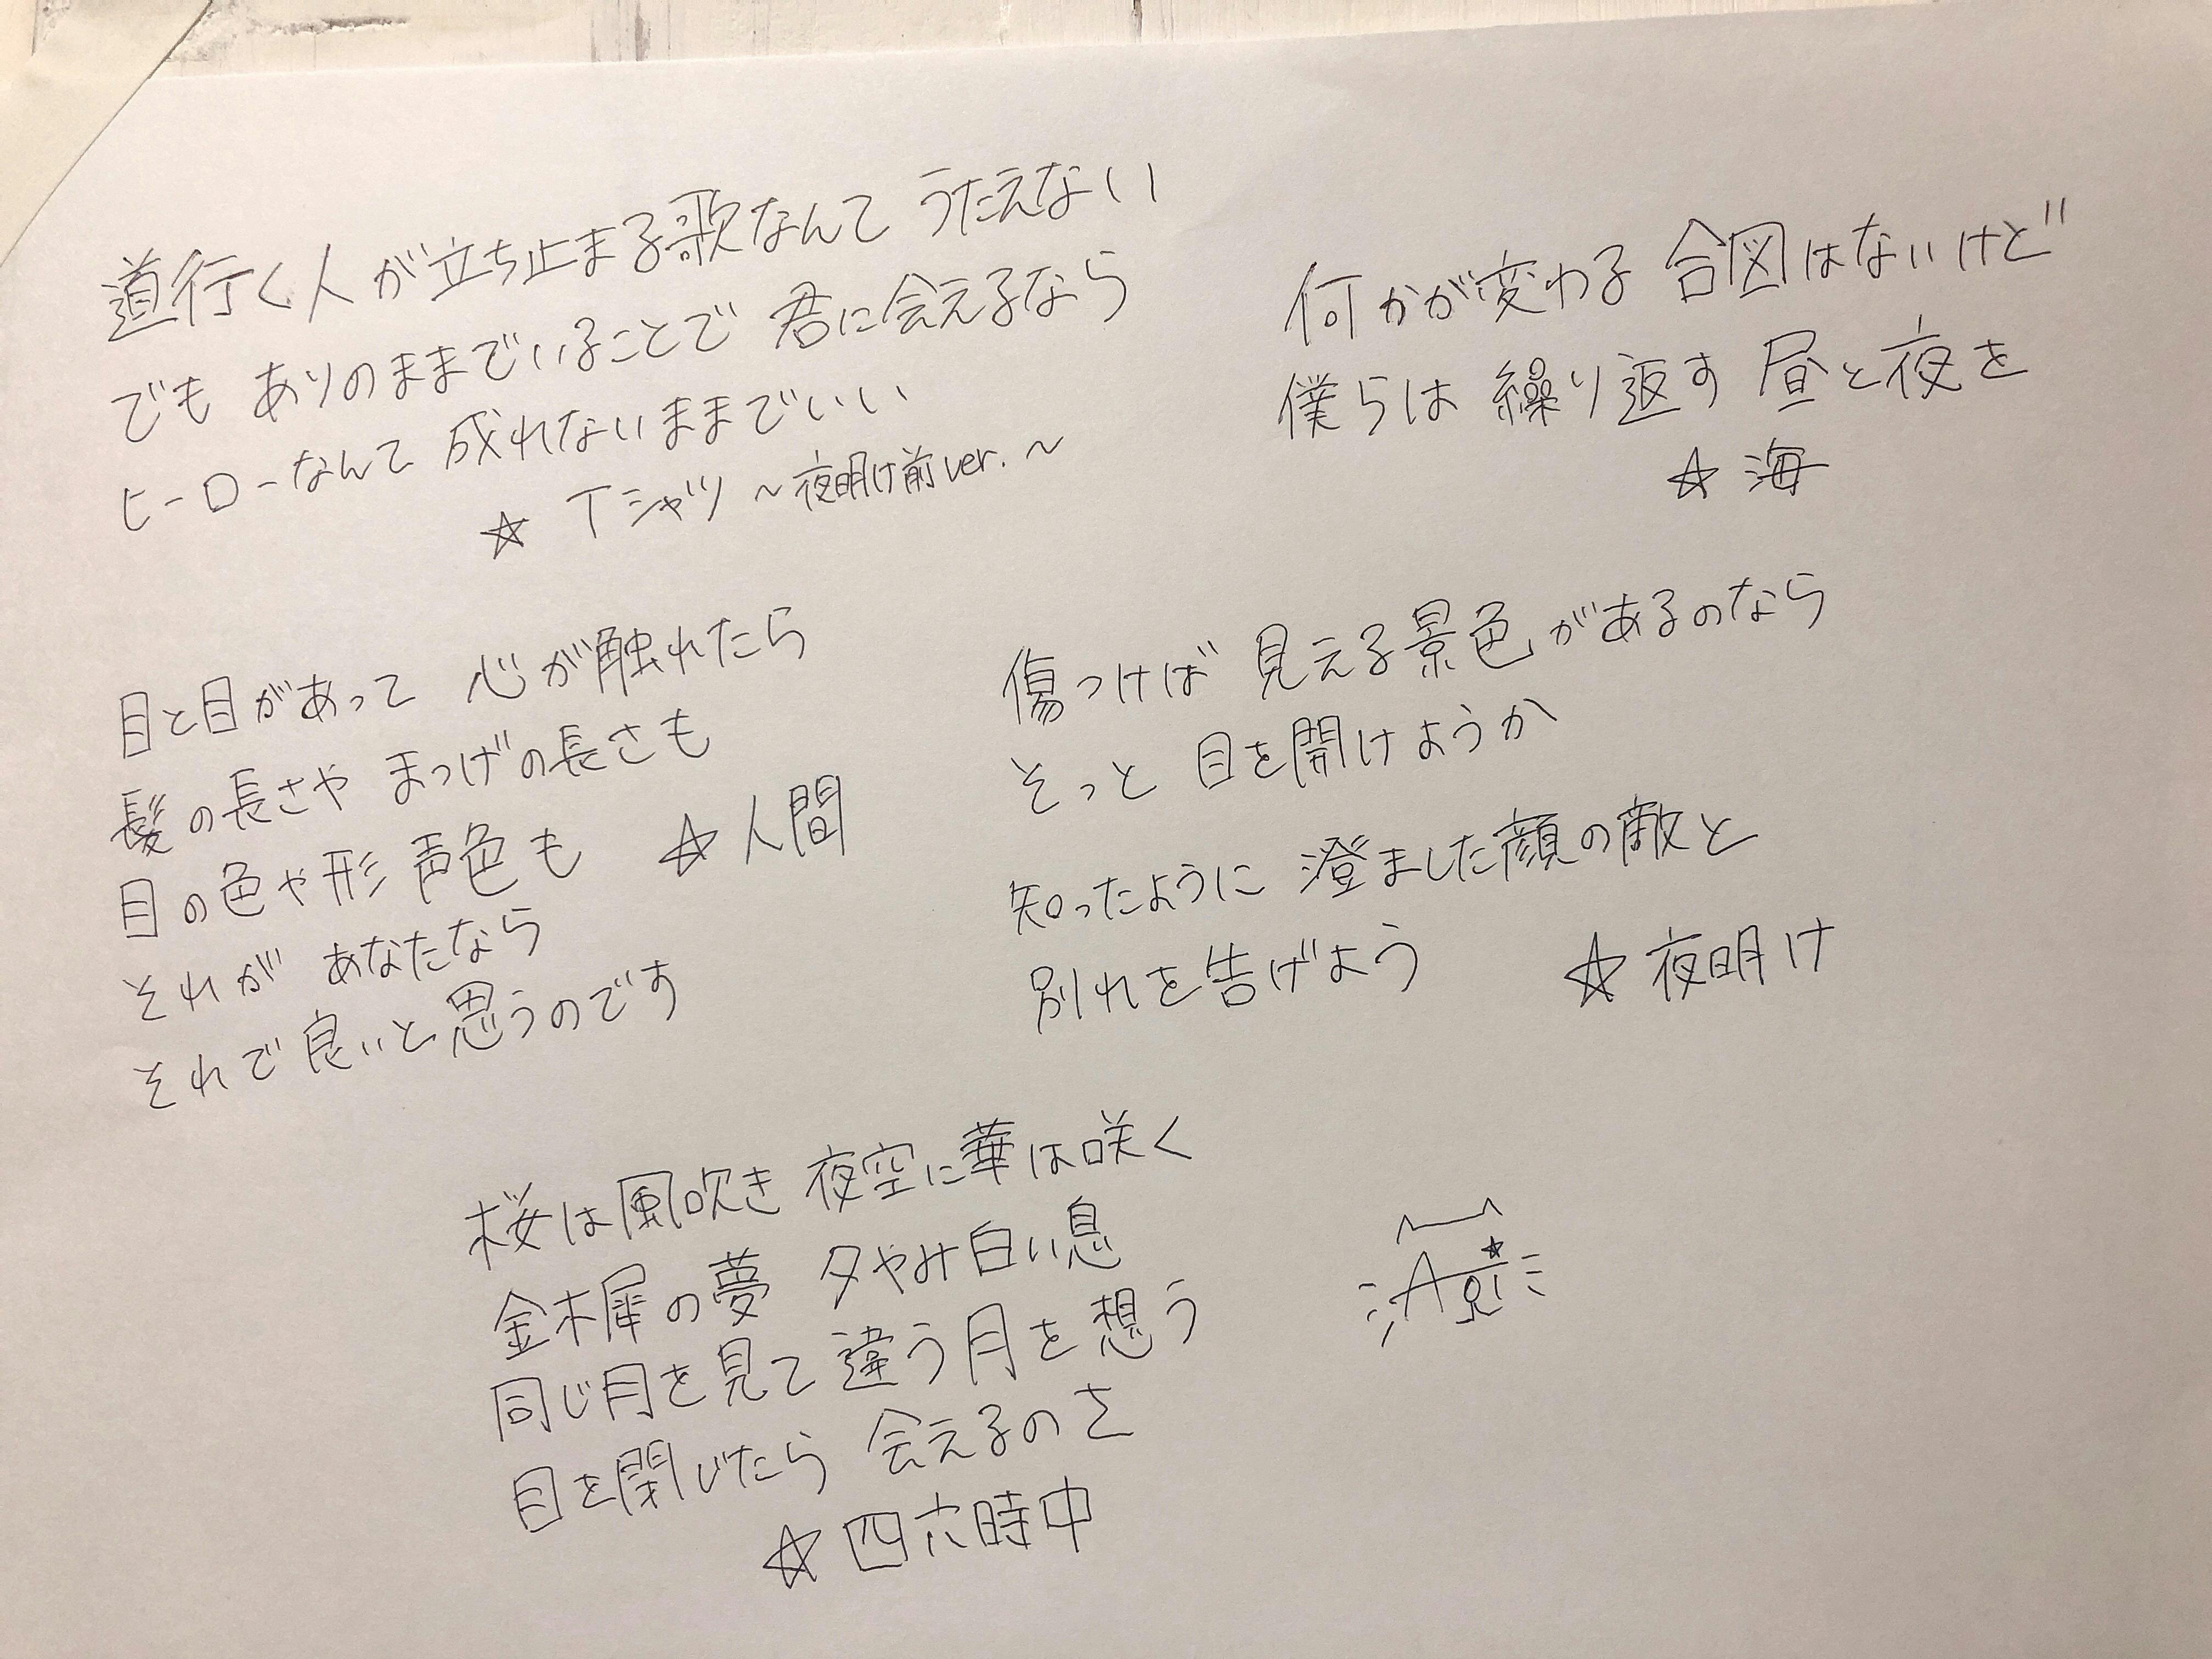 道行く人が立ち止まる歌なんて うたえない
でも ありのままでいることで 君に会えるなら
ヒーローなんて 成れないままでいい
☆ Tシャツ ～夜明け前ver.～
何かが変わる 合図はないけど
僕らは 繰り返す 昼と夜を
☆ 海
目と目があって 心が触れたら
髪の長さや まつげの長さも
目の色や形 声色も ☆人間
それが あなたなら
それで良いと思うのです
傷つけば 見える景色があるのなら
そっと 目を開けようか
知ったように 澄ました顔の敵と
別れを告げよう ☆夜明け
桜は風吹き 夜空に華は咲く
金木犀の夢 夕やみ白い息
同じ月を見て 違う月を想う
目を閉じたら 会えるのさ
☆四六時中